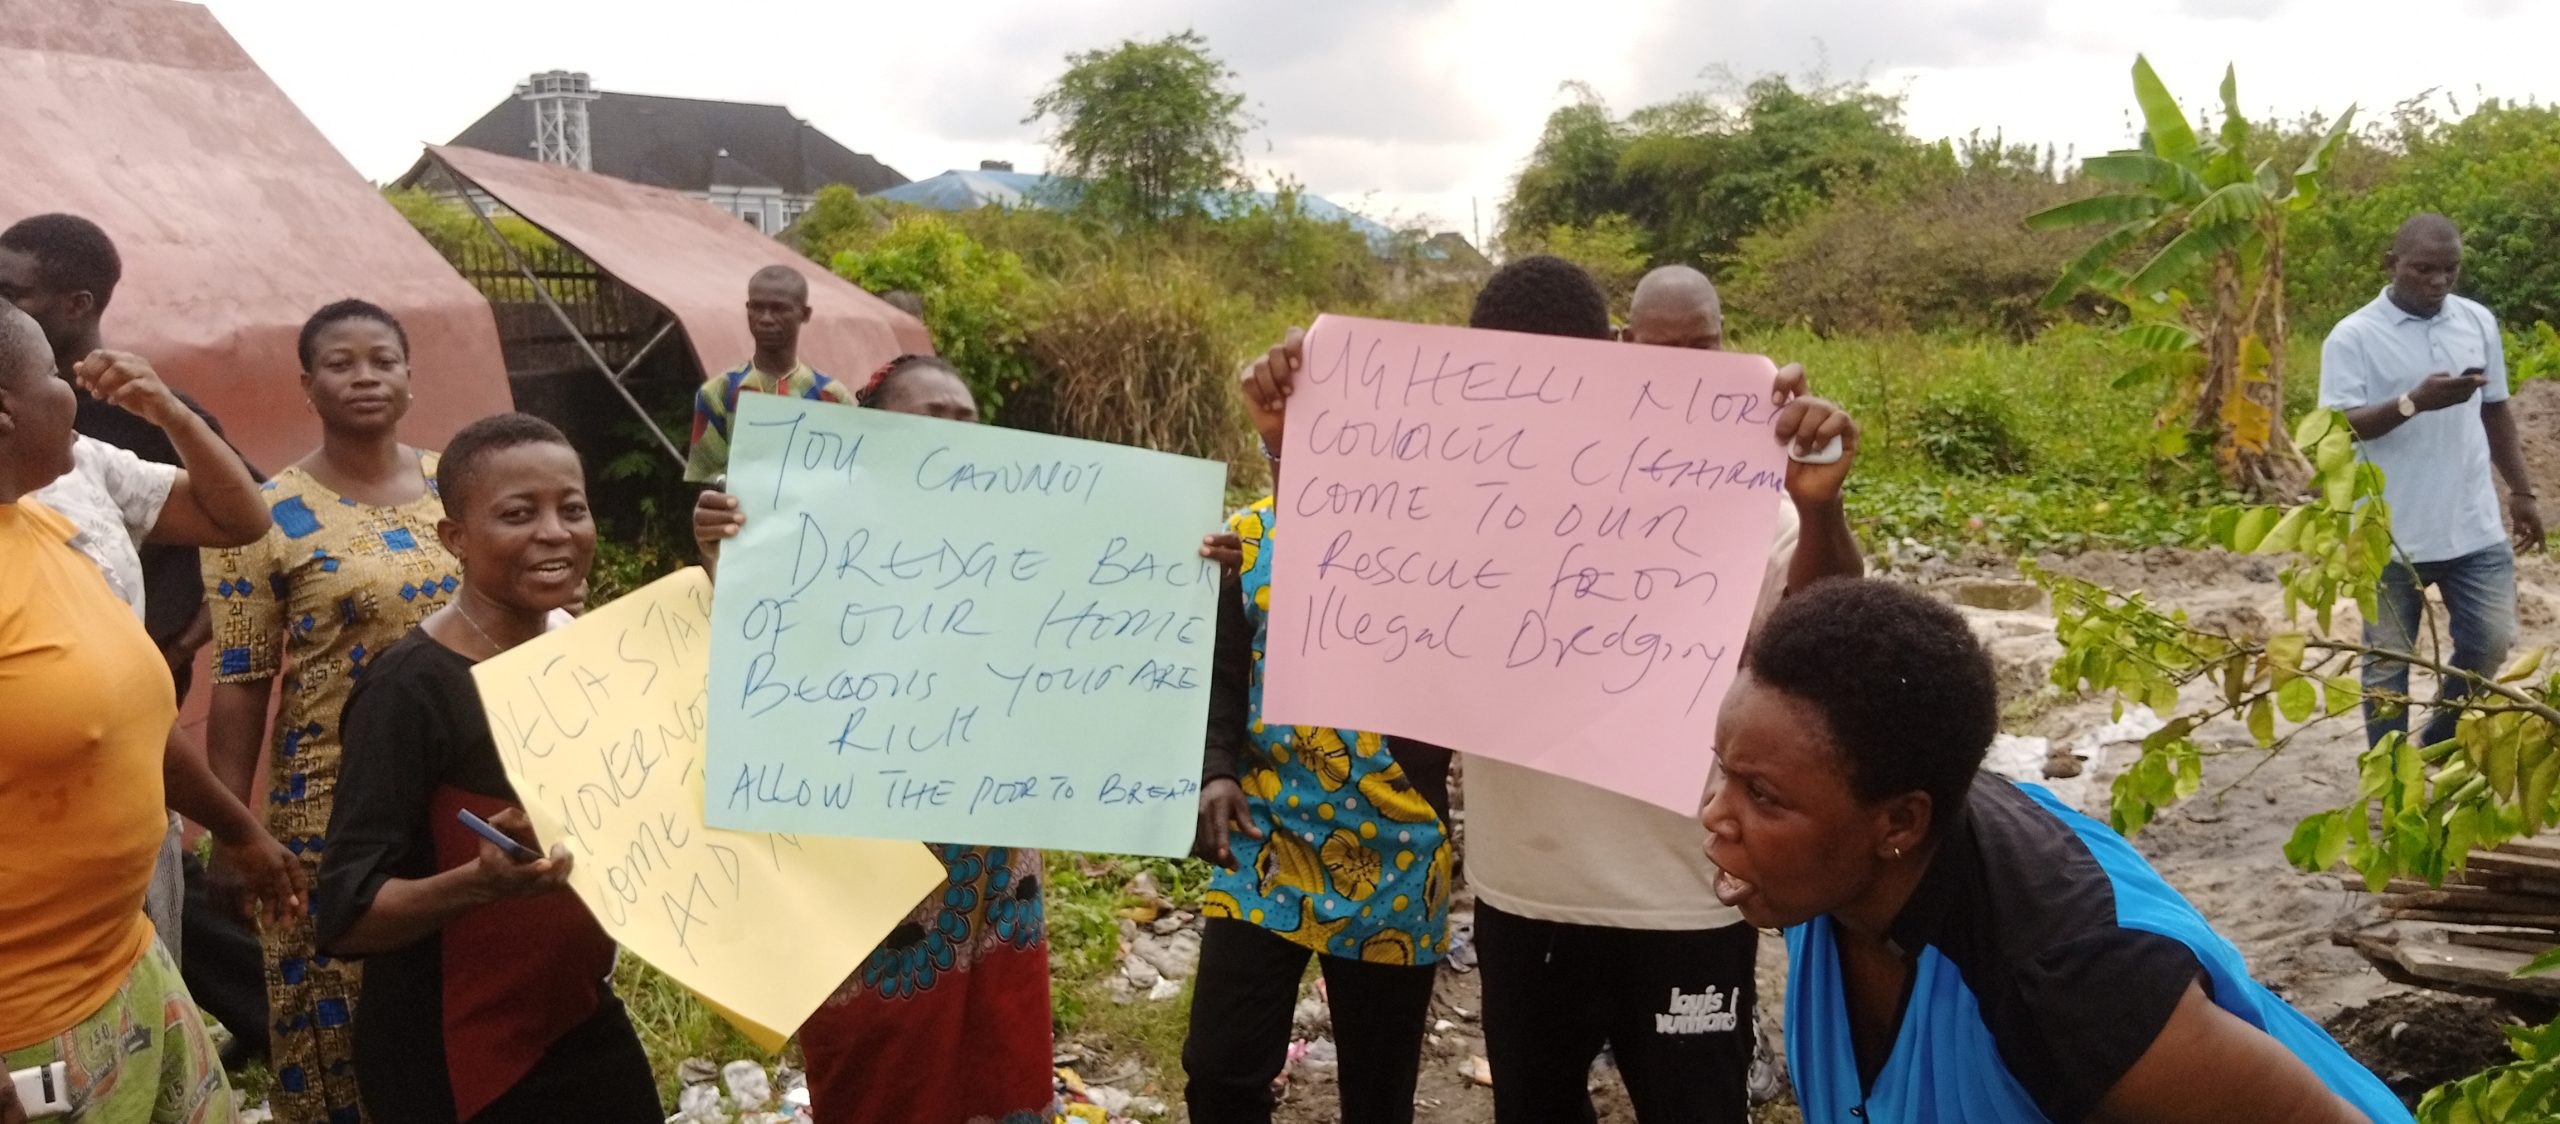 DELTA STAT
GOVERNO
COME
AID
YOU CANNOT
DREDGE BACK
OF OUR HOME
YOUR ARE
RICH
ALLOW THE POOR TO BREATH
UGHELLI NOR
COUNCIL CHAIRM
COME TO OUR
RESCUE FROM
Illegal Dredging
louis
vuitton